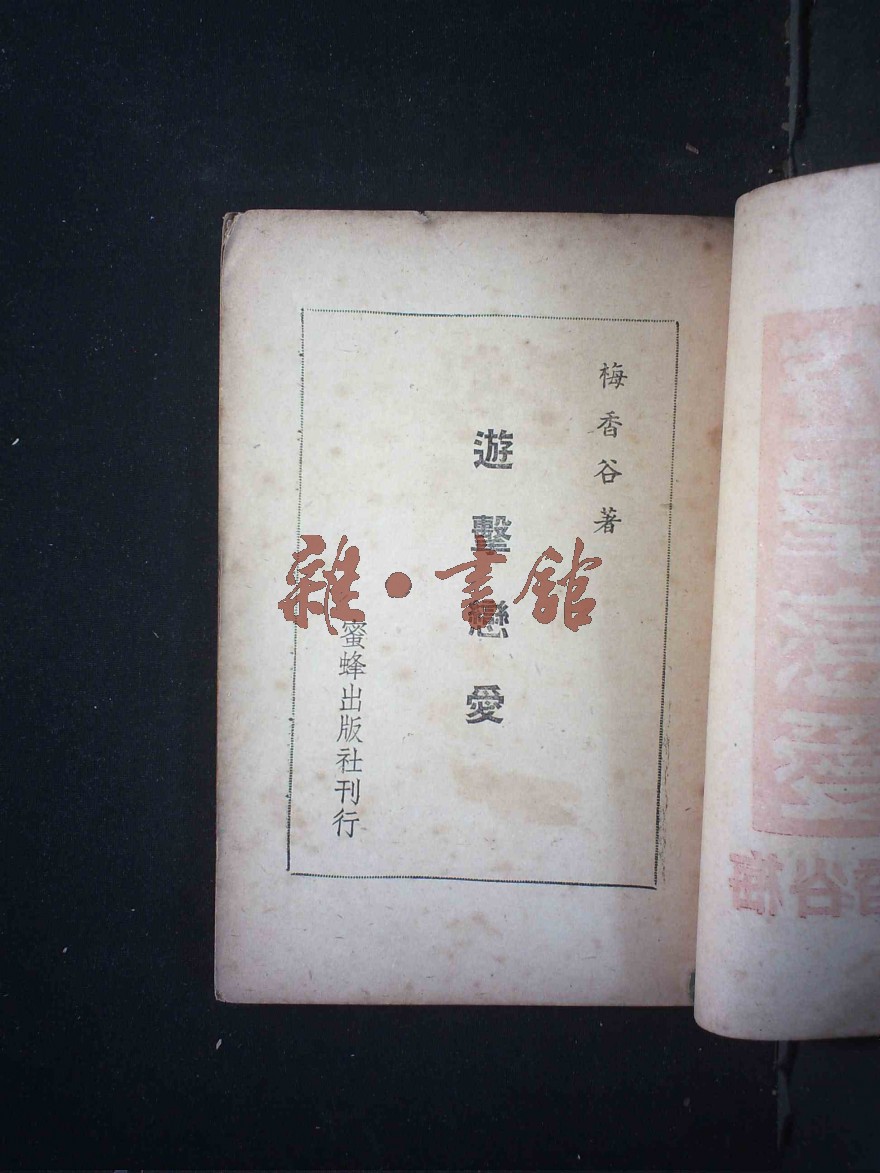 梅香谷著
遊擊戀愛
蜜蜂出版社刊行
雜·書館